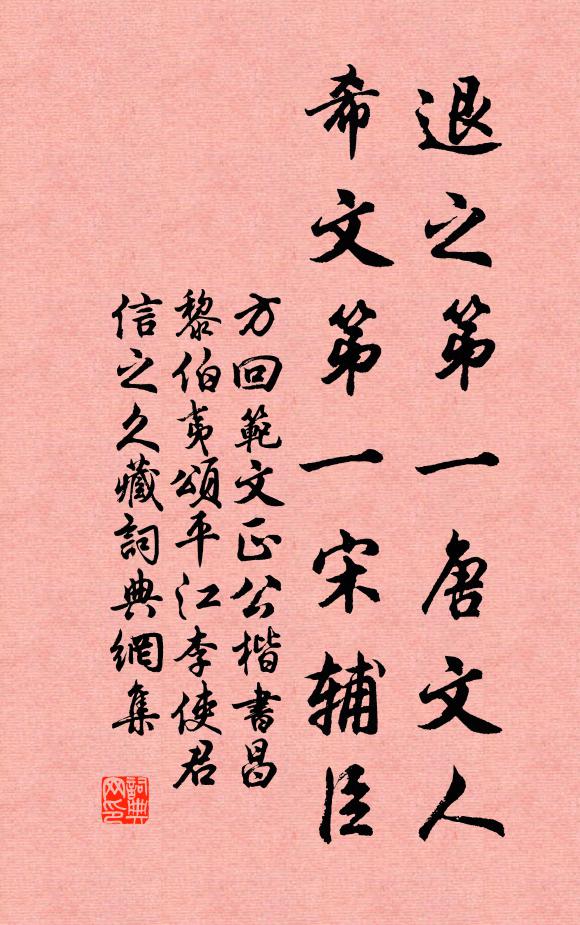 退之第一唐文人
希文第一宋辅臣
方回範文正公楷書昌
黎伯夷頌平江李使君
信之久藏詞典網集
詞典
网印